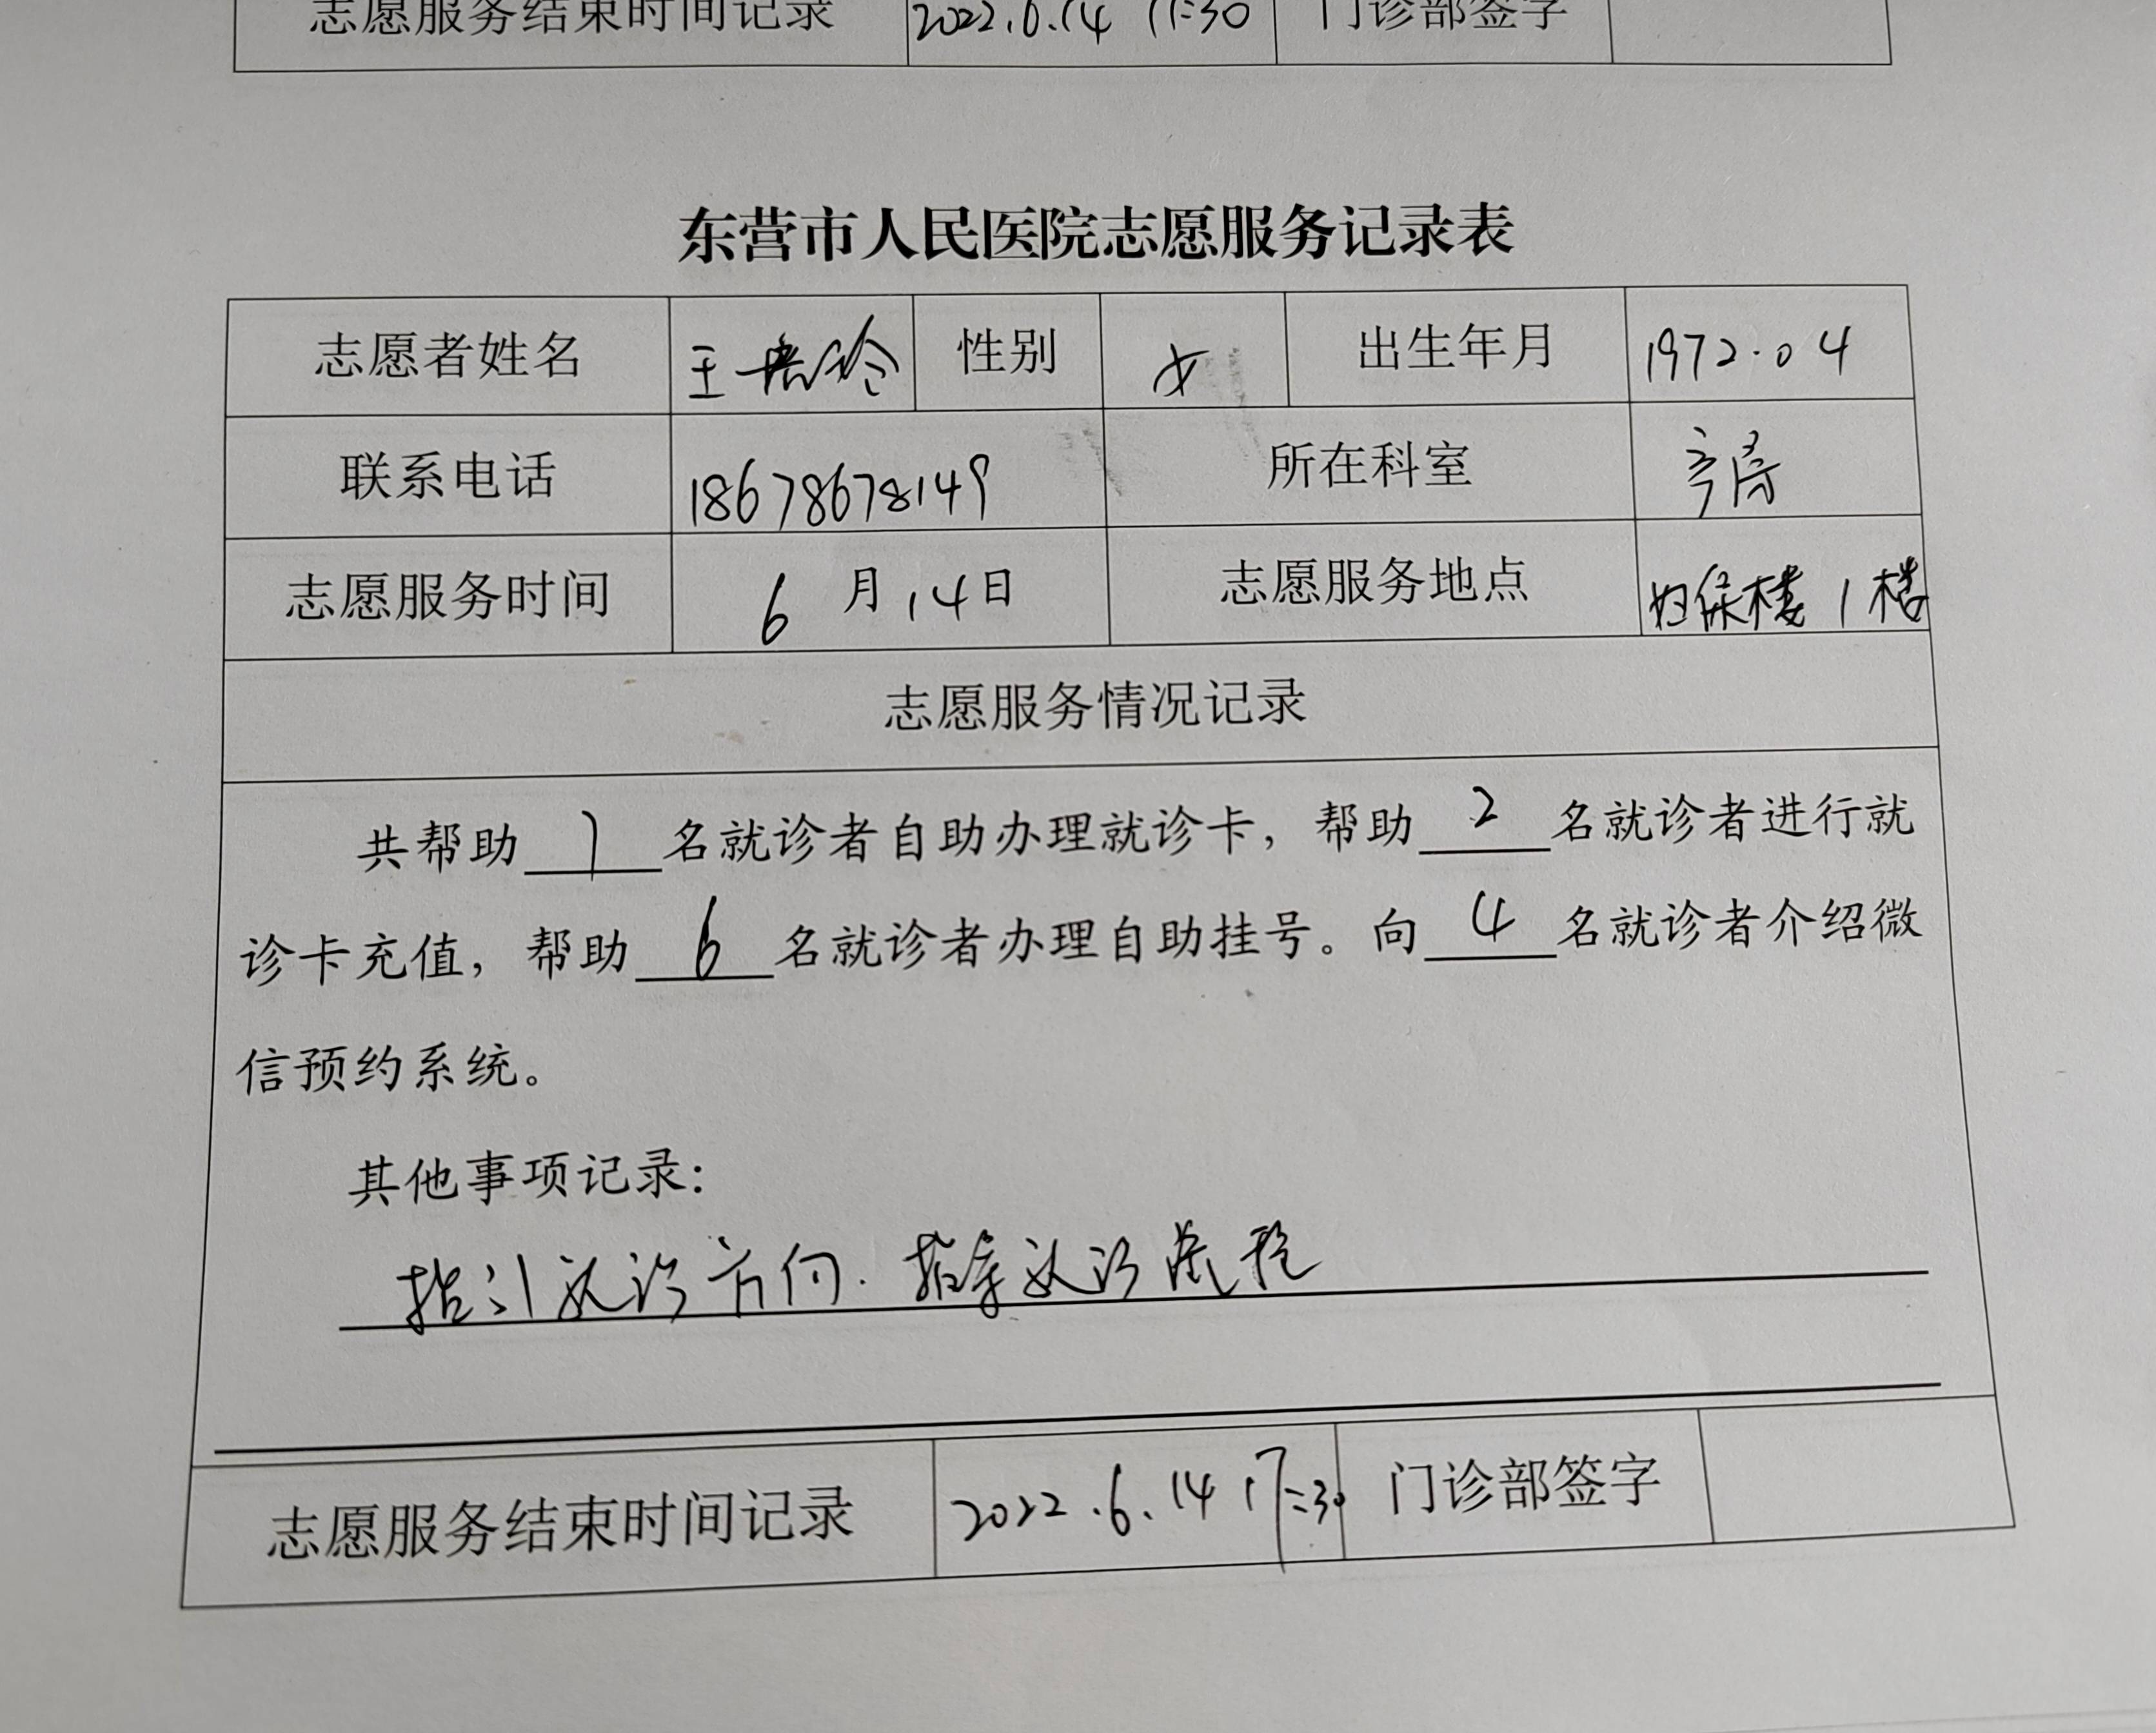 志愿服务结束时间记录 2022.6.14 11:30 门诊部签字
东营市人民医院志愿服务记录表
志愿者姓名 王 玲 性别 女 出生年月 1972.04
联系电话 18678678149 所在科室
志愿服务时间 6月14日 志愿服务地点 妇保楼1楼
志愿服务情况记录
共帮助 1 名就诊者自助办理就诊卡，帮助 2 名就诊者进行就
诊卡充值，帮助 6 名就诊者办理自助挂号。向 4 名就诊者介绍微
信预约系统。
其他事项记录：
指引就诊方向.指导就诊流程
志愿服务结束时间记录 2022.6.14 17:30 门诊部签字